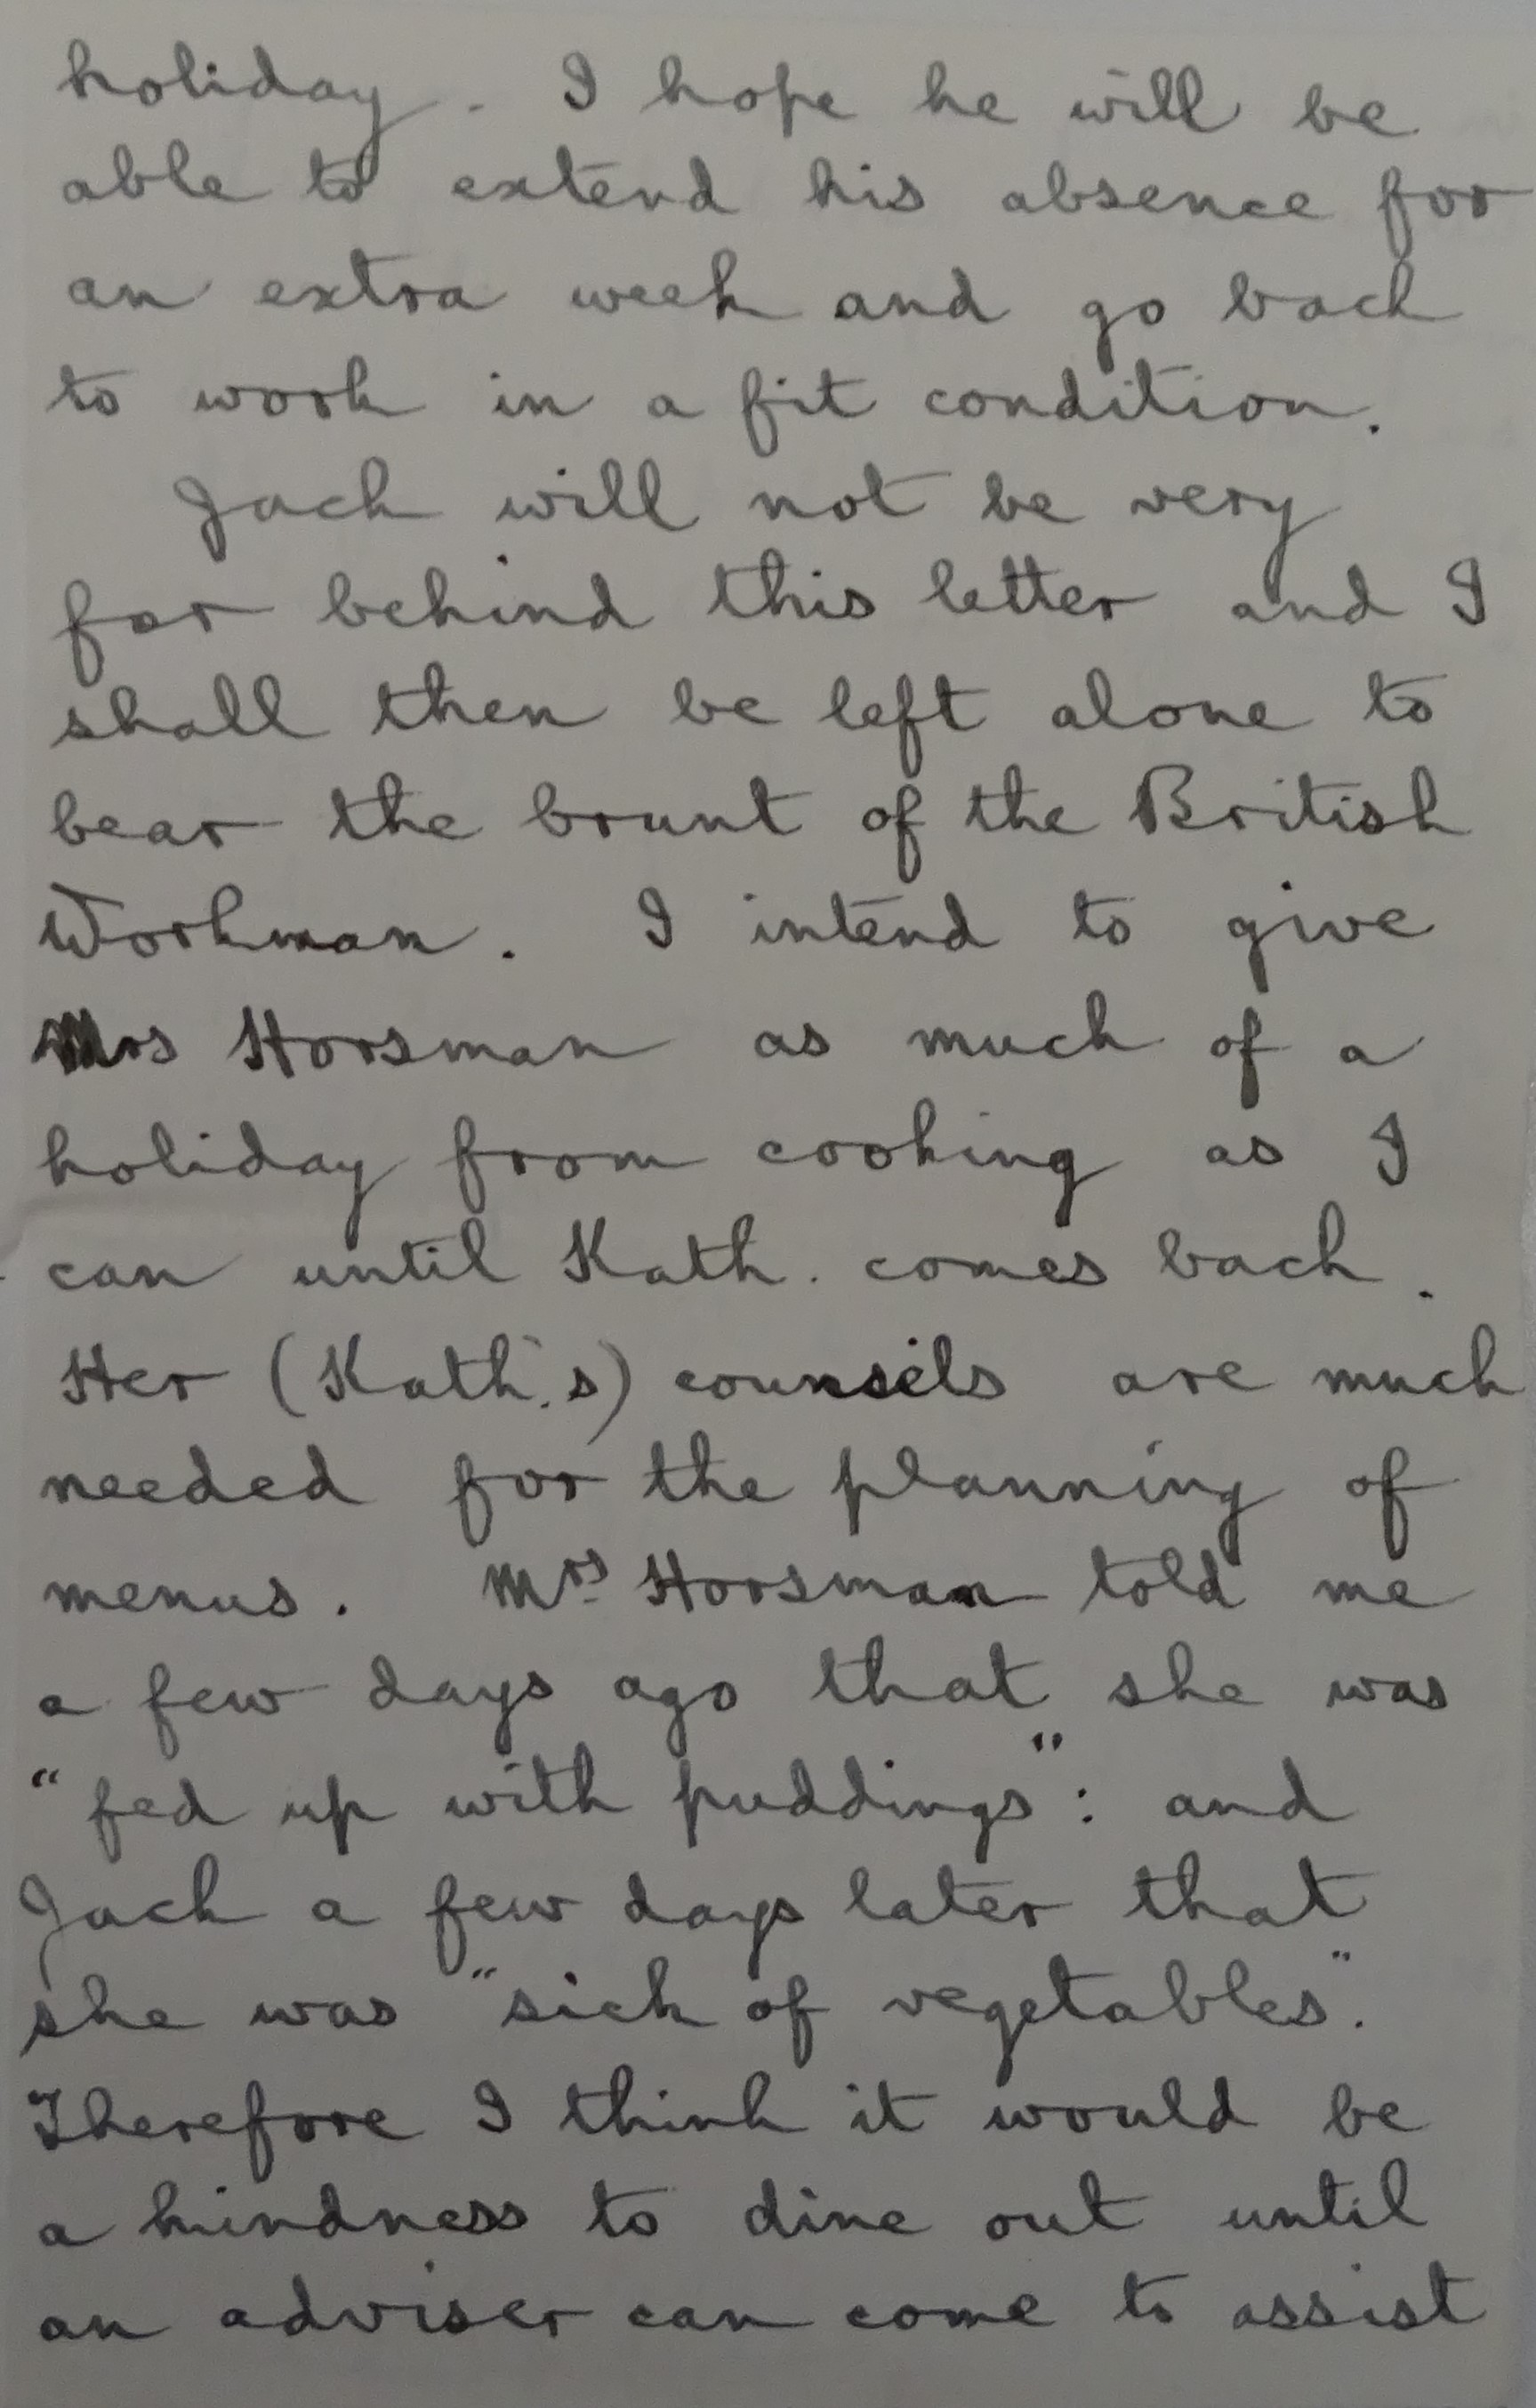 holiday. I hope he will be
able to extend his absence for
an extra week and go back
to work in a fit condition.
Jack will not be very
far behind this letter and I
shall then be left alone to
bear the brunt of the British
Workman. I intend to give
Mrs Horsman as much of a
holiday from cooking as I
can until Kath. comes back.
Her (Kath.'s) counsels are much
needed for the planning of
menus. Mrs Horsman told me
a few days ago that she was
"fed up with puddings": and
Jack a few days later that
she was "sick of vegetables".
Therefore I think it would be
a kindness to dine out until
an adviser can come to assist